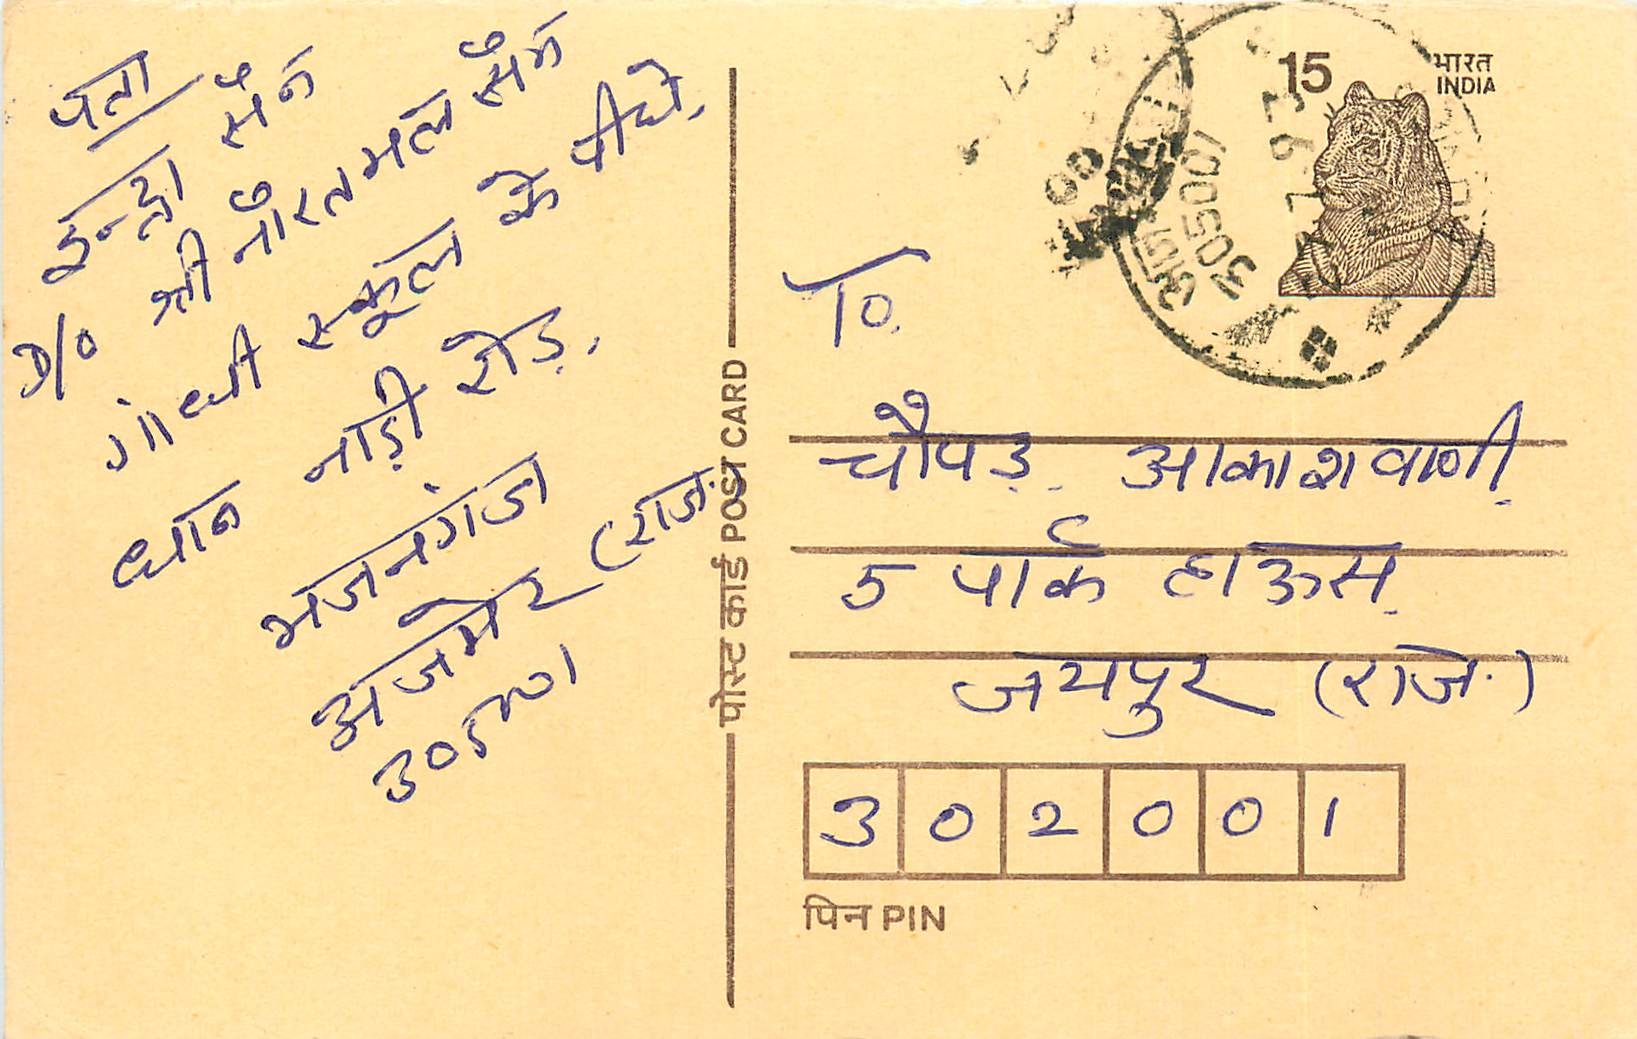 पता
इन्द्रा सैन
D/O श्री नौरतमल सैन
गांधी स्कूल के पीछे,
धान नाड़ी रोड़,
भजनगंज
अजमेर (राज.
305001
पोस्ट कार्ड POST CARD
15
भारत
INDIA
305001
To,
चौपड़ आकाशवाणी
5 पार्क हाऊस
जयपुर (राज.)
3 0 2 0 0 1
पिन PIN